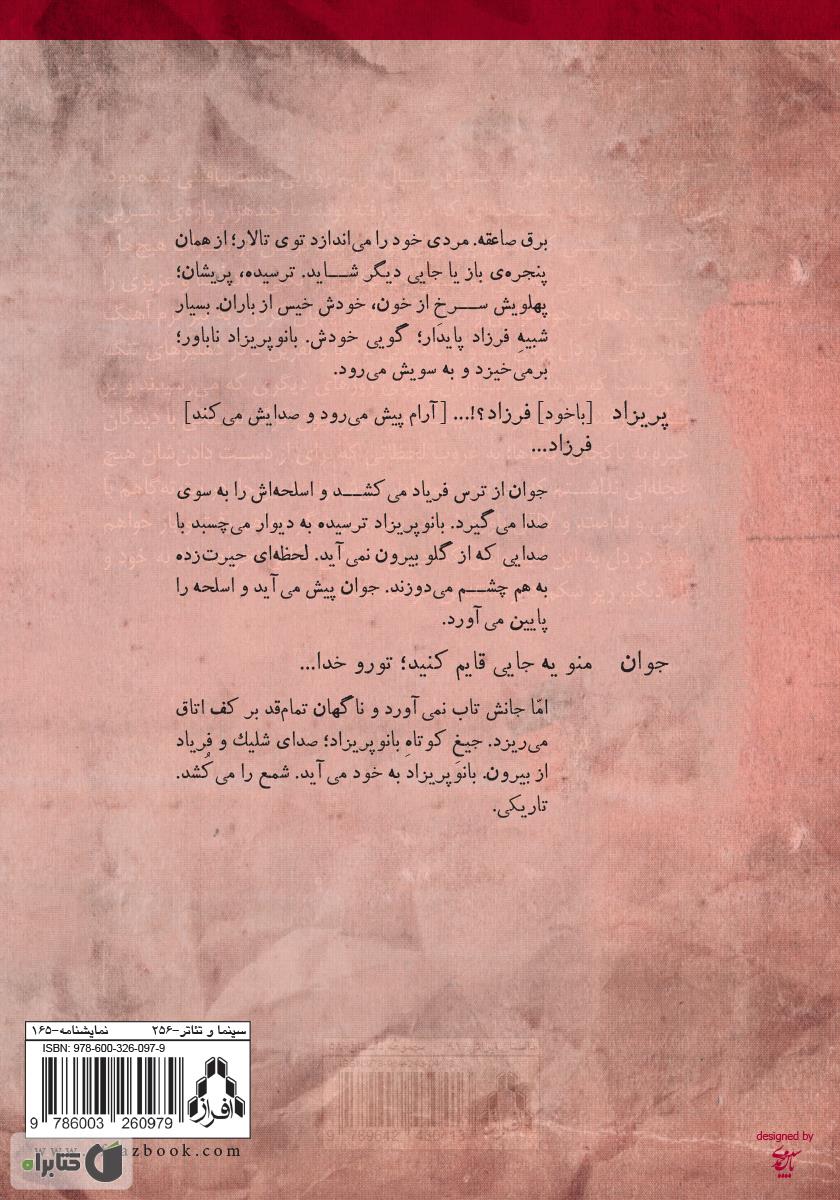 برق صاعقه. مردی خود را می‌اندازد توی تالار؛ از همان
پنجره‌ی باز یا جایی دیگر شـــاید. ترسیده، پریشان؛
پهلویش ســـرخ از خون، خودش خیس از باران. بسیار
شبیهِ فرزاد پایدَار؛ گویی خودش. بانو پریزاد ناباور؛
برمی‌خیزد و به سویش می‌رود.
پریزاد [باخود] فرزاد؟!... [آرام پیش می‌رود و صدایش می‌کند]
فرزاد...
جوان از ترس فریاد می‌کشـــد و اسلحه‌اش را به سوی
صدا می‌گیرد. بانو پریزاد ترسیده به دیوار می‌چسبد با
صدایی که از گلو بیرون نمی‌آید. لحظه‌ای حیرت‌زده
به هم چشـــم می‌دوزند. جوان پیش می‌آید و اسلحه را
پایین می‌آورد.
جوان منو یه جایی قایم کنید؛ تورو خدا...
امّا جانش تاب نمی‌آورد و ناگهان تمام‌قد بر کف اتاق
می‌ریزد. جیغِ کوتاهِ بانو پریزاد؛ صدای شلیك و فریاد
از بیرون. بانو پریزاد به خود می‌آید. شمع را می‌کُشد.
تاریکی.
سینما و تئاتر-۲۵۶ نمایشنامه-۱۶۵
ISBN: 978-600-326-097-9
افراز
9 786003 260979
azbook.com
کتابراه
designed by